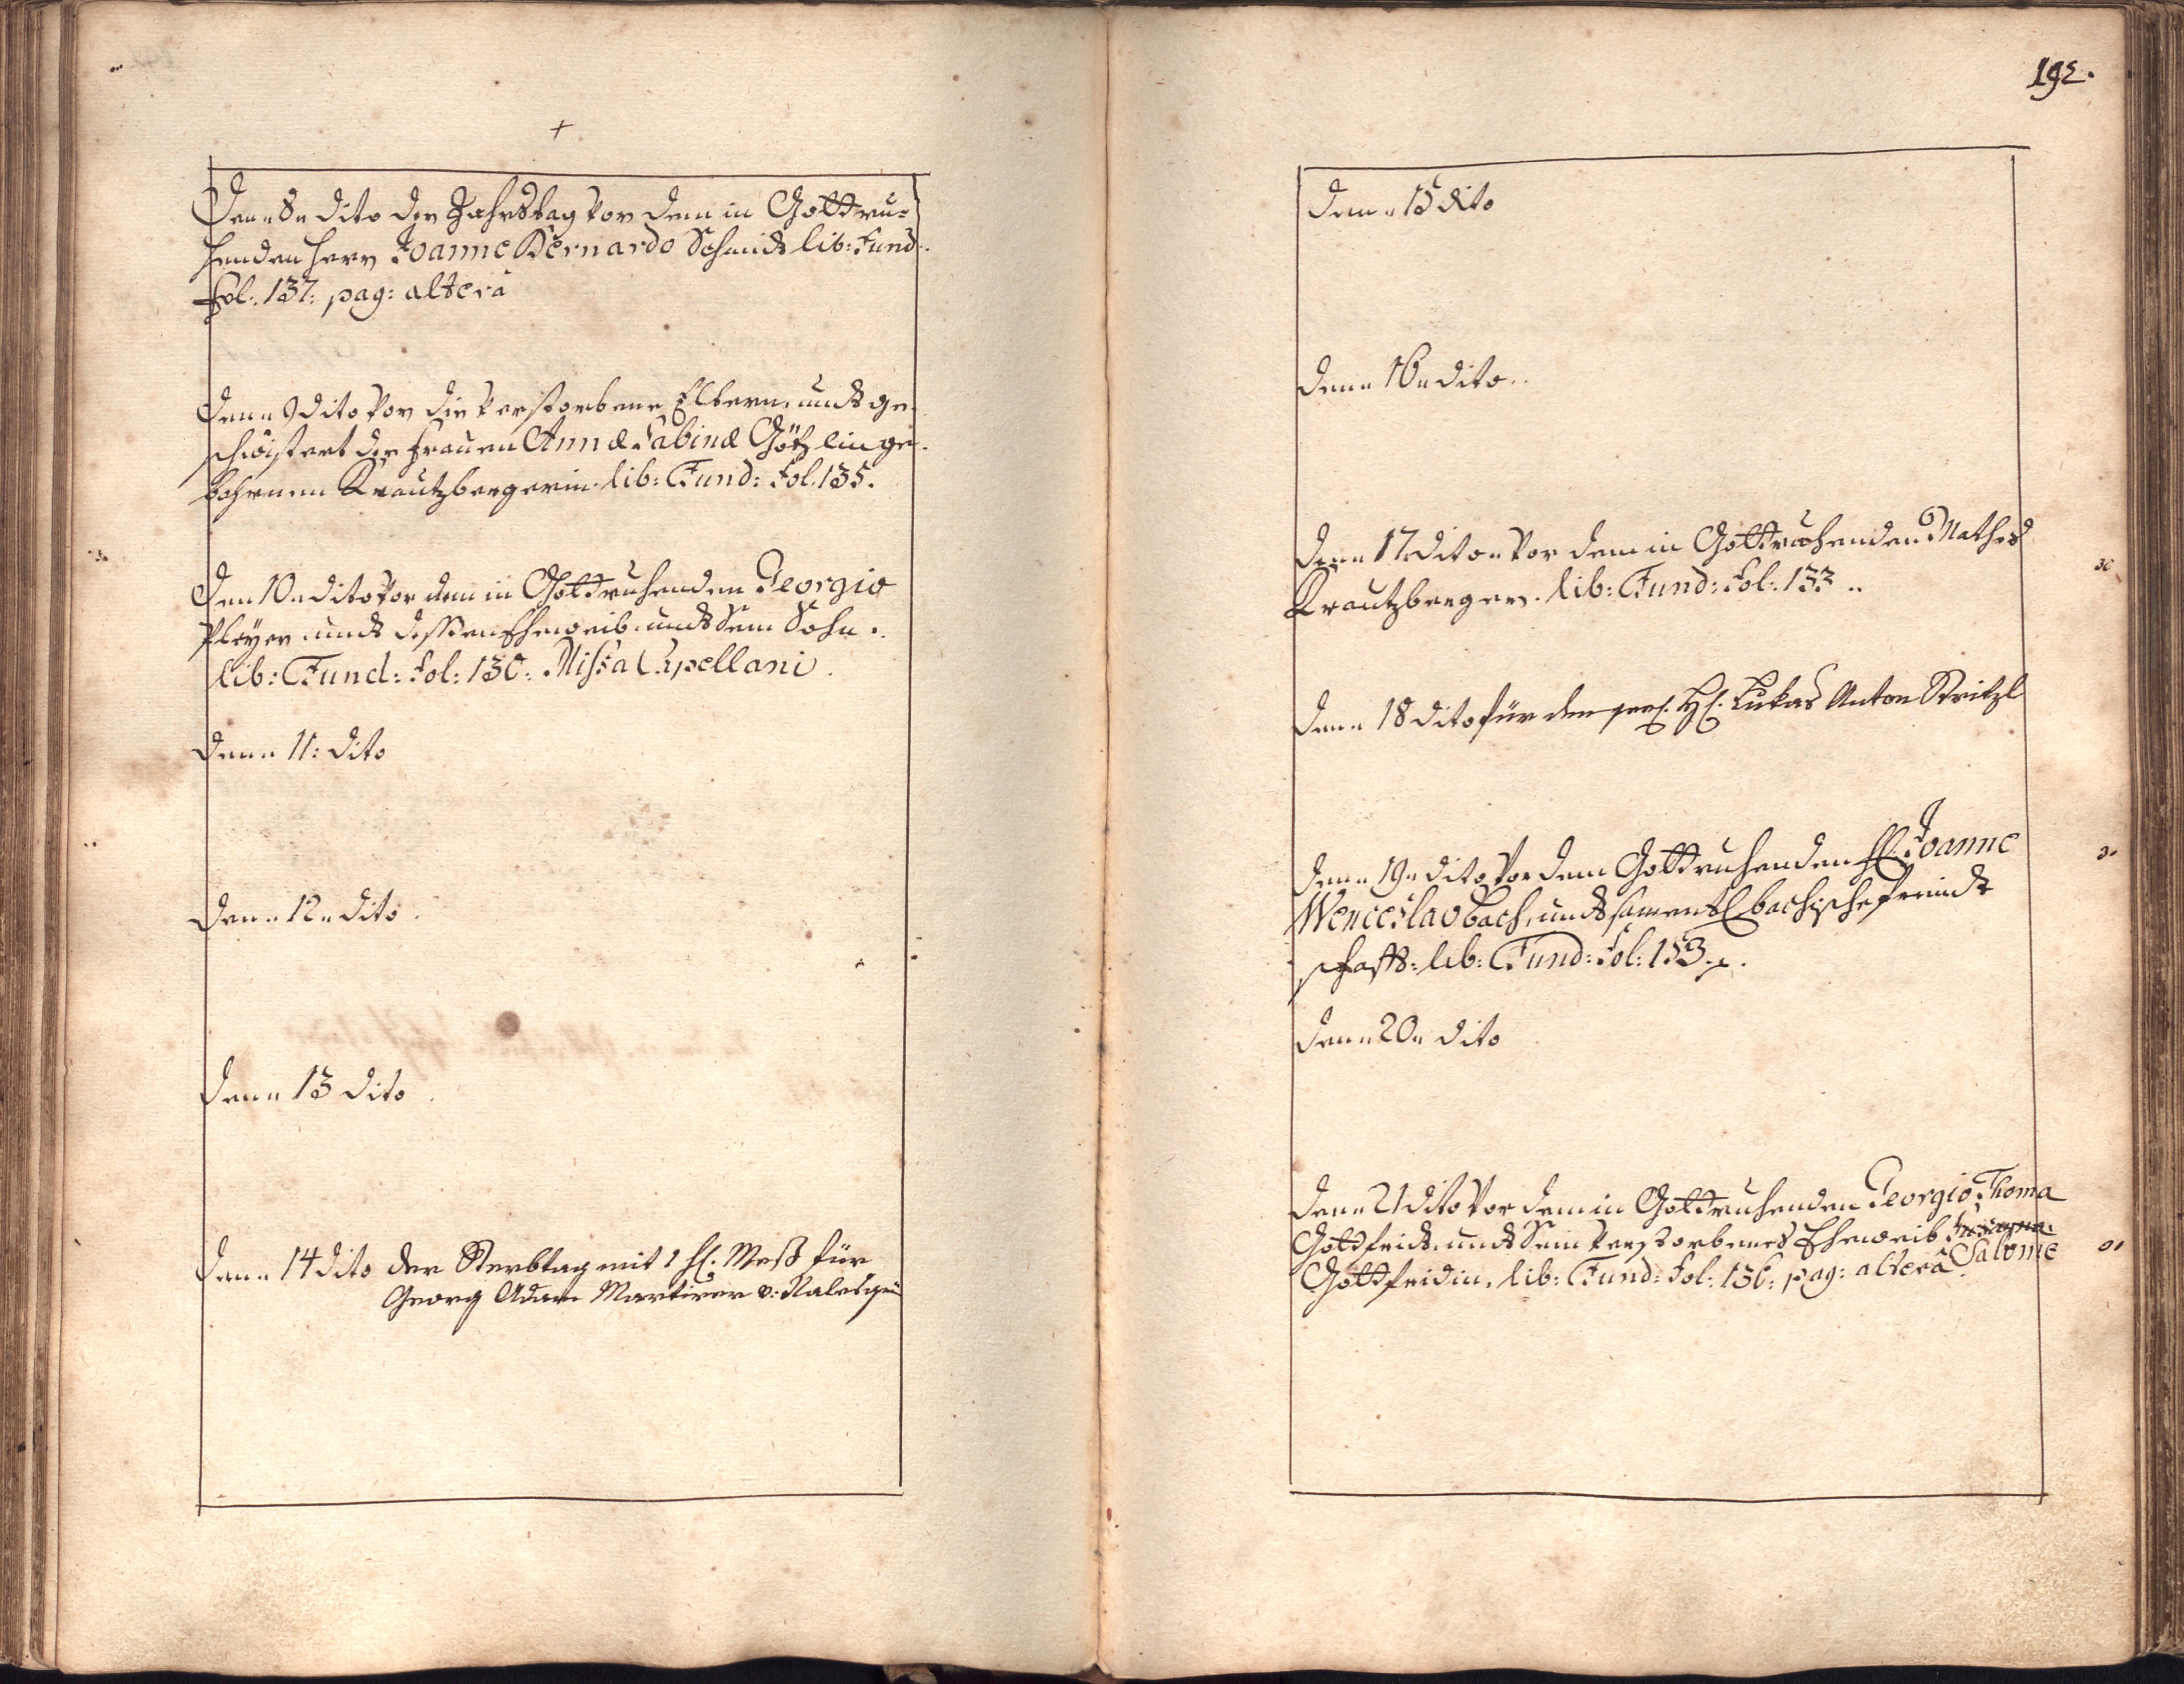 +
Denn 8n dito der Jahrstag vor dem in Gott ru-
henden Herrn Joanne Bernardo Schmidt lib: Fund:
Fol: 137: pag: alterâ
Denn 9 dito vor die verstorbene Eltern, undt ge-
schwistert der Frauen Annæ Sabinæ Götzlin ge-
bohrnen Krautzbergerin. lib: Fund: Fol. 135.
Den 10n dito vor dem in Gott ruhenden Georgio
Pleÿer undt dessen Eheweib undt Sein Sohn.
lib: Fund: Fol: 130: Missa Capellani.
Denn 11: dito
Denn 12n dito.
Denn 13 dito.
Denn 14 dito der Sterbtag mit 1 hl. Meß für
Georg Adam Martirer v:
192.
Denn 15 dito
Denn 16n dito..
Denn 17 dito vor dem in Gott ruhenden Mathes
Krautzberger. lib: Fund: Fol: 133..
Denn 18 dito für den H. Lukas Anton Stritzl
Denn 19n dito vor dem Gott ruhenden H. Joanne
Wenceslao bach, undt samentl bachische freind-
schafft: lib: Fund: Fol: 153.
Denn 20n dito
Denn 21 dito vor dem in Gott ruhenden Georgio Thoma
Gottfridt, undt Sein verstorbenes Eheweib
Salome
Gottfridin. lib: Fund: Fol: 136: pag: alterâ